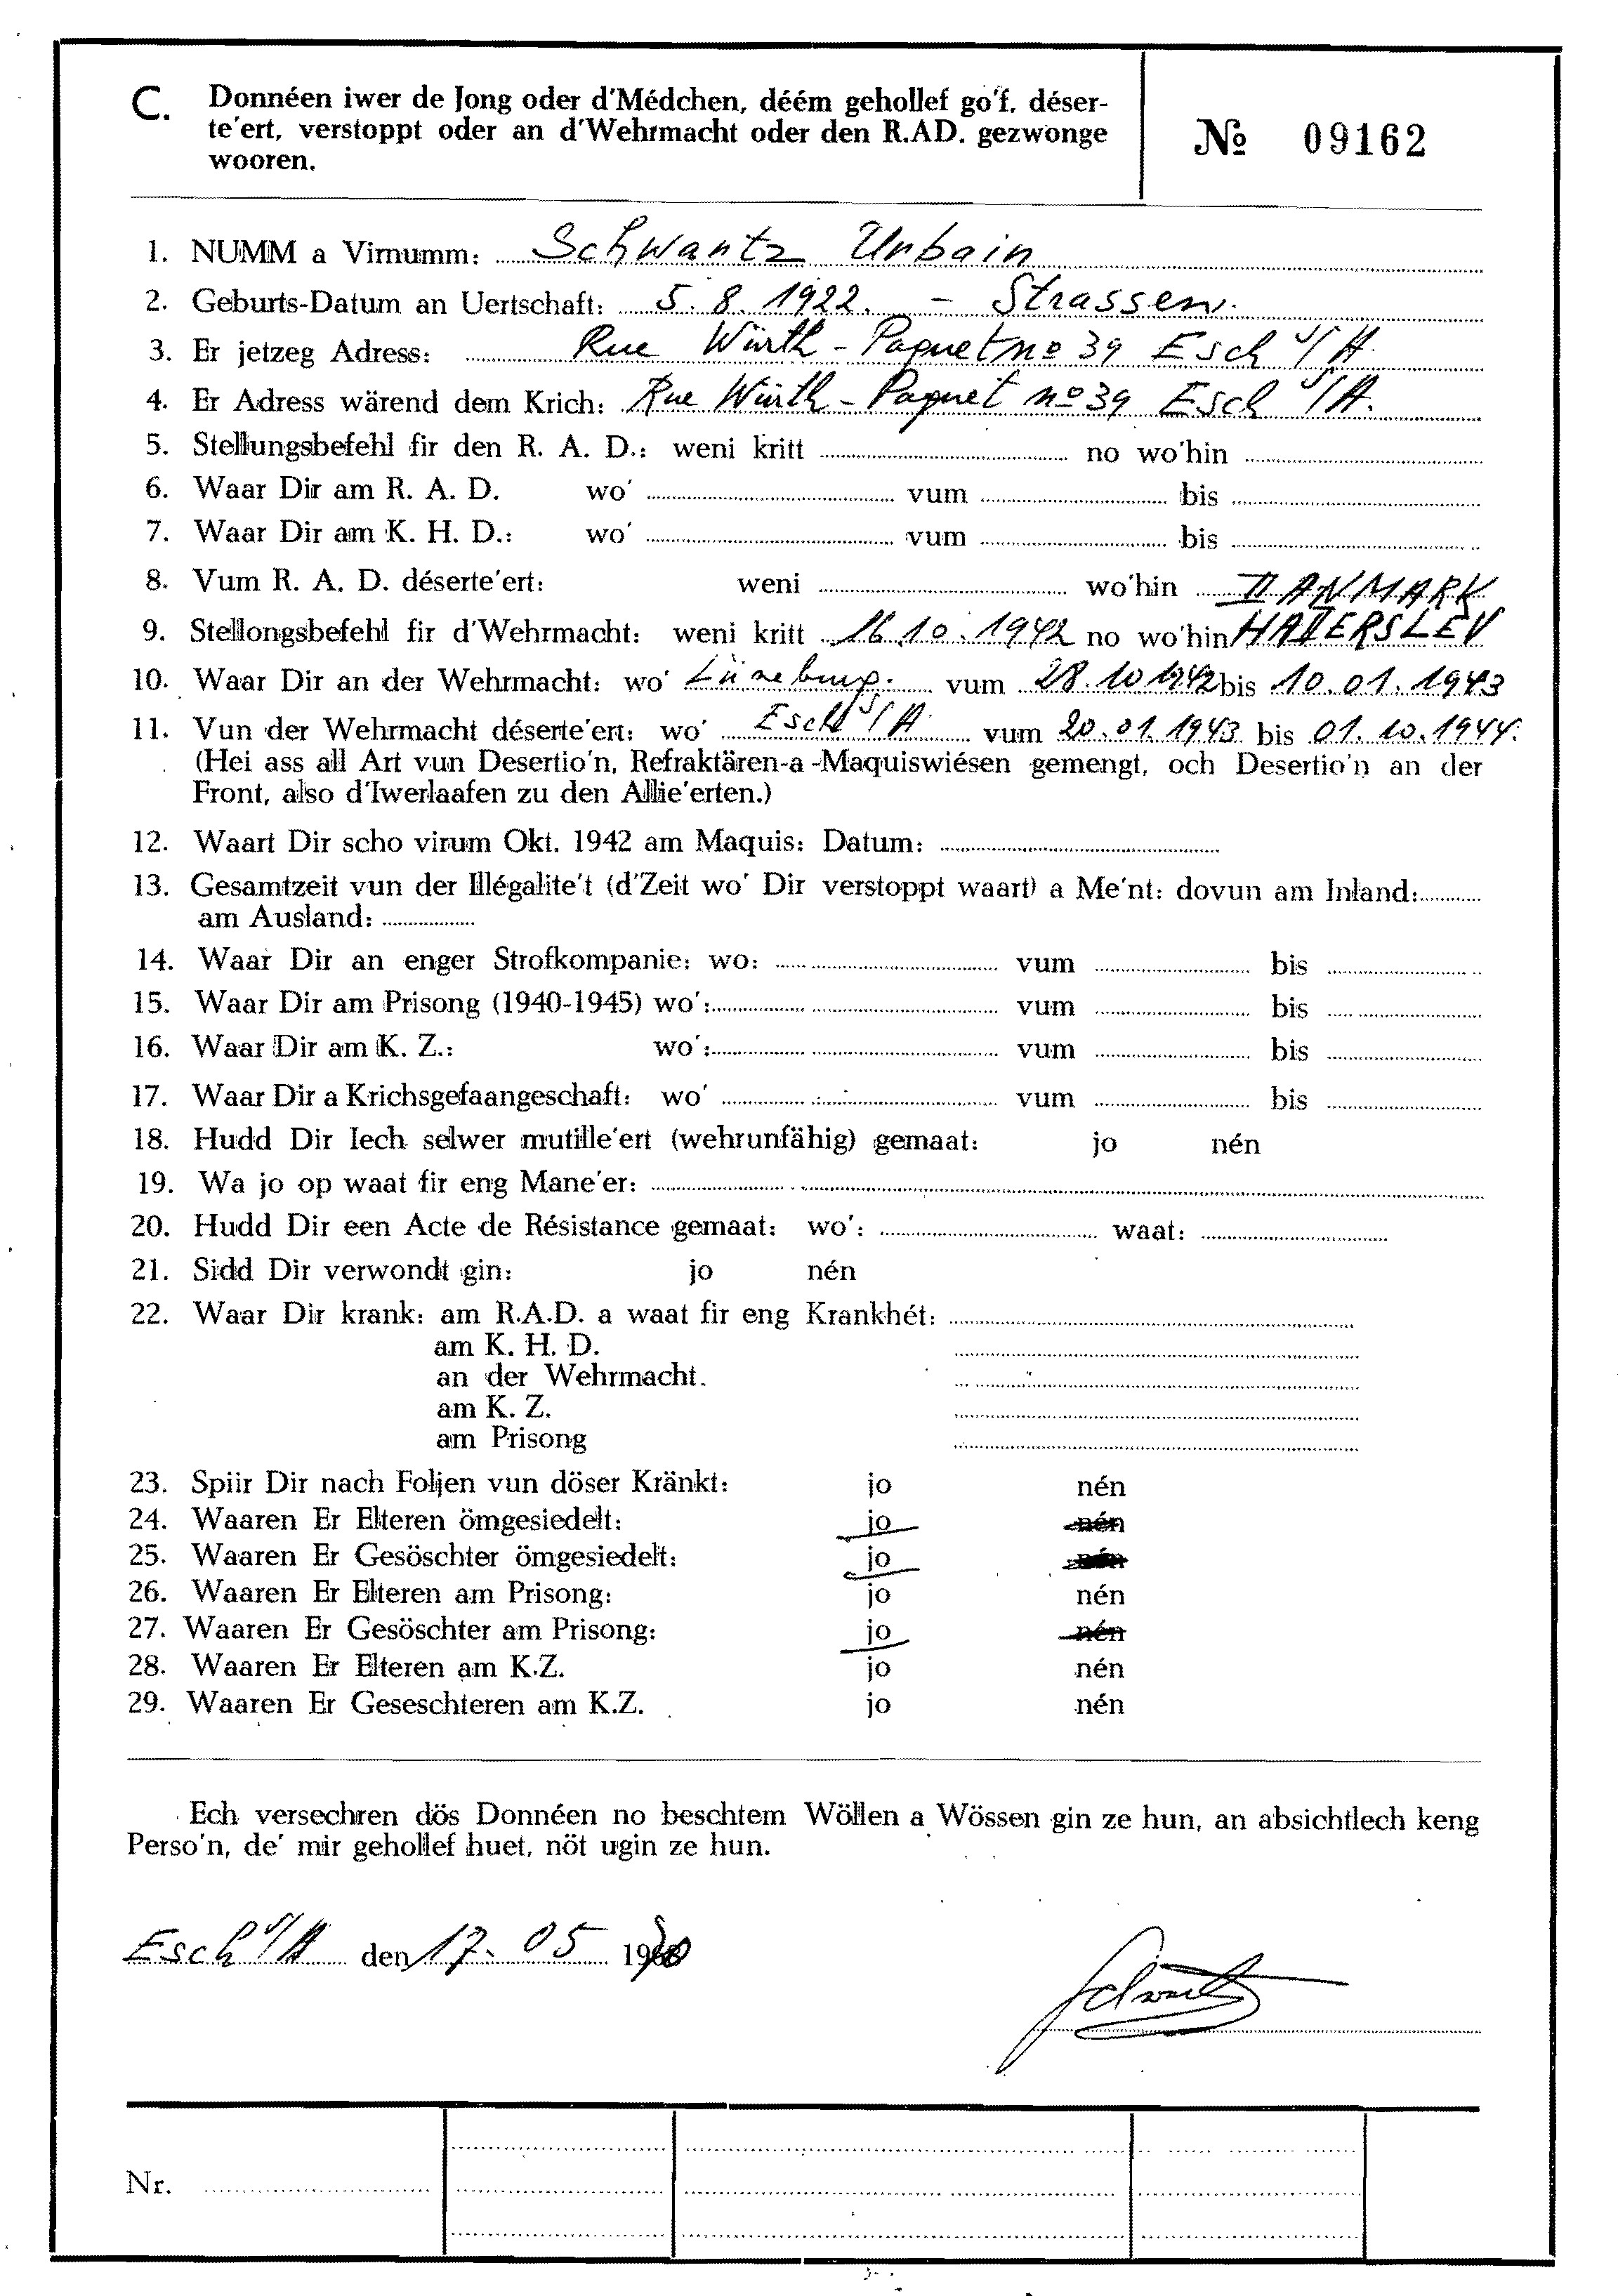 C. Donnéen iwer de Jong oder d'Médchen, déém gehollef go'f, déser-
te'ert, verstoppt oder an d'Wehrmacht oder den R.AD. gezwonge
wooren.
№ 09162
1. NUMM a Virnumm: Schwartz Urbain
2. Geburts-Datum an Uertschaft: 5. 8. 1922. - Strassen.
3. Er jetzeg Adress: Rue Würth-Paquet no 39 Esch s/A.
4. Er Adress wärend dem Krich: Rue Würth-Paquet no 39 Esch s/A.
5. Stellungsbefehl fir den R. A. D.: weni kritt no wo'hin
6. Waar Dir am R. A. D. wo' vum bis
7. Waar Dir am K. H. D.: wo' vum bis
8. Vum R. A. D. déserte'ert: weni wo'hin DANMARK
9. Stellongsbefehl fir d'Wehrmacht: weni kritt 16.10.1942 no wo'hin HADERSLEV
10. Waar Dir an der Wehrmacht: wo' Lüneburg. vum 28.10 1942 bis 10.01.1943
11. Vun der Wehrmacht déserte'ert: wo' Esch s/A. vum 20.01.1943 bis 01.10.1944.
(Hei ass all Art vun Desertio'n, Refraktären-a-Maquiswiésen gemengt, och Desertio'n an der
Front, also d'Iwerlaafen zu den Allie'erten.)
12. Waart Dir scho virum Okt. 1942 am Maquis: Datum:
13. Gesamtzeit vun der Illégalite't (d'Zeit wo' Dir verstoppt waart) a Me'nt: dovun am Inland:
am Ausland:
14. Waar Dir an enger Strofkompanie: wo: vum bis
15. Waar Dir am Prisong (1940-1945) wo': vum bis
16. Waar Dir am K. Z.: wo': vum bis
17. Waar Dir a Krichsgefaangeschaft: wo' vum bis
18. Hudd Dir Iech selwer mutille'ert (wehrunfähig) gemaat: jo nén
19. Wa jo op waat fir eng Mane'er:
20. Hudd Dir een Acte de Résistance gemaat: wo': waat:
21. Sidd Dir verwondt gin: jo nén
22. Waar Dir krank: am R.A.D. a waat fir eng Krankhét:
am K. H. D.
an der Wehrmacht.
am K. Z.
am Prisong
23. Spiir Dir nach Foljen vun döser Kränkt: jo nén
24. Waaren Er Elteren ömgesiedelt: jo nén
25. Waaren Er Gesöschter ömgesiedelt: jo nén
26. Waaren Er Elteren am Prisong: jo nén
27. Waaren Er Gesöschter am Prisong: jo nén
28. Waaren Er Elteren am K.Z. jo nén
29. Waaren Er Geseschteren am K.Z. jo nén
Ech versechren dös Donnéen no beschtem Wöllen a Wössen gin ze hun, an absichtlech keng
Perso'n, de' mir gehollef huet, nöt ugin ze hun.
Esch s/A den 17. 05 19
Schwartz
Nr.